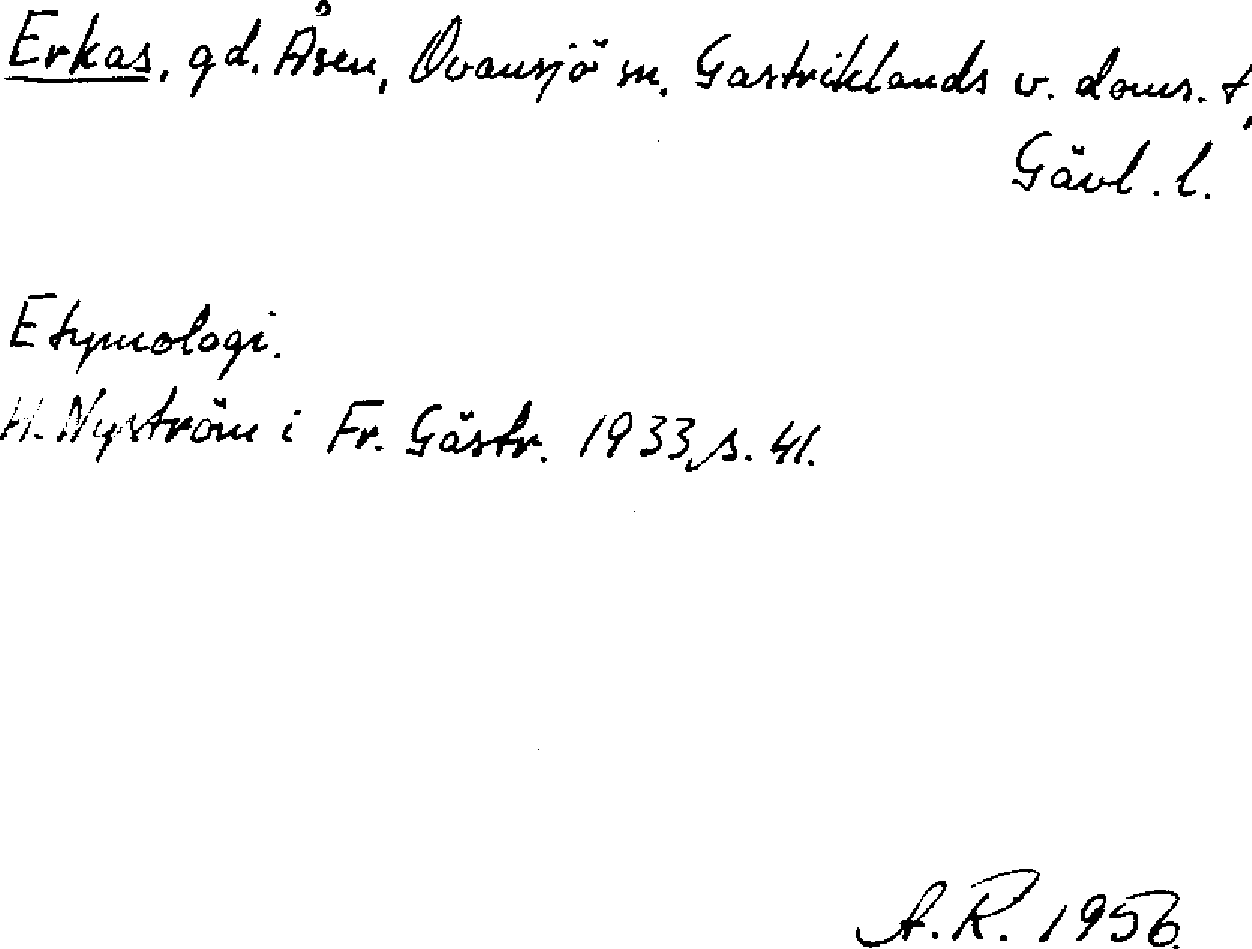 Erkas, gd. Åsen, Ovansjö sn, Gästriklands v. doms. t,
Gävl. l.
Etymologi.
H. Nyström i Fr. Gästr. 1933, s. 41.
A. R. 1956